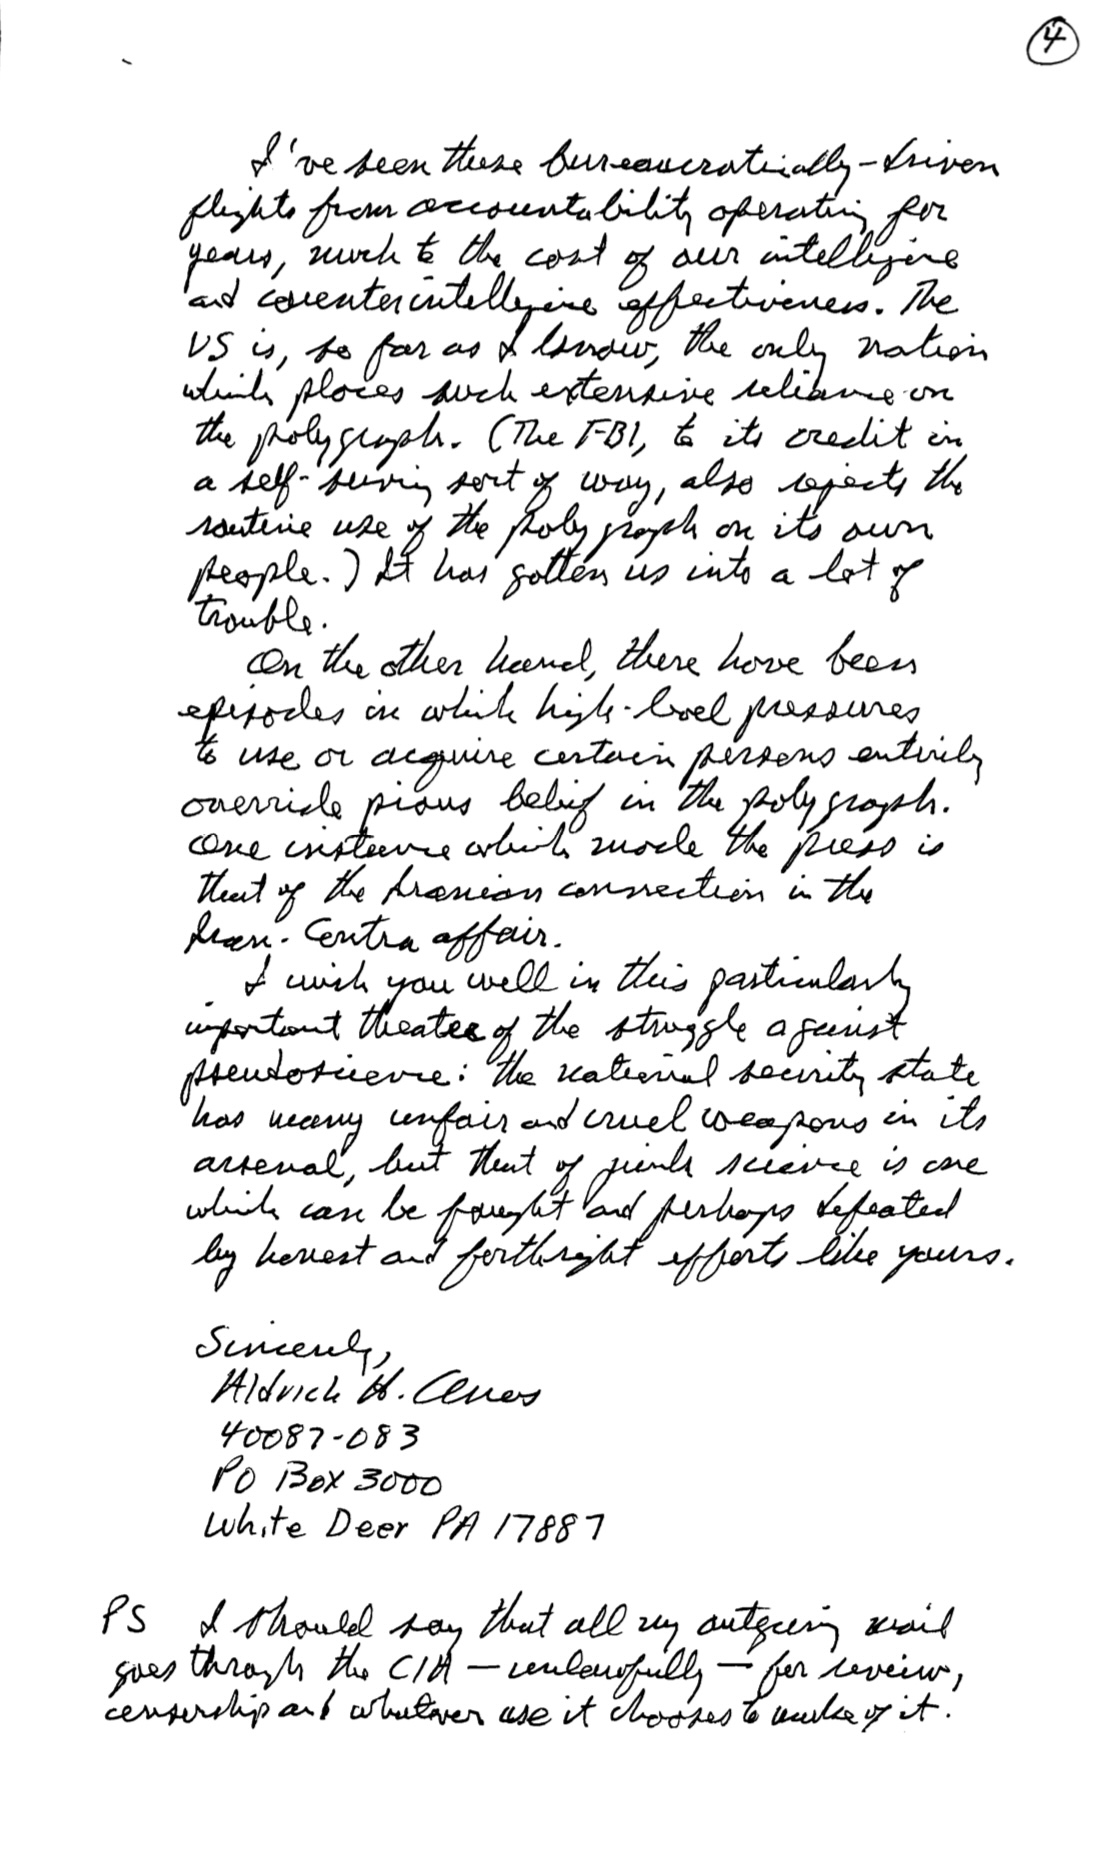 4
I've seen these bureaucratically-driven
flights from accountability operating for
years, much to the cost of our intelligence
and counterintelligence effectiveness. The
US is, so far as I know, the only nation
which places such extensive reliance on
the polygraph. (The FBI, to its credit in
a self-serving sort of way, also rejects the
routine use of the polygraph on its own
people.) It has gotten us into a lot of
trouble.
On the other hand, there have been
episodes in which high-level pressures
to use or acquire certain persons entirely
override pious belief in the polygraph.
One instance which made the press is
that of the Iranian connection in the
Iran-Contra affair.
I wish you well in this particularly
important theater of the struggle against
pseudoscience: the national security state
has many unfair and cruel weapons in its
arsenal, but that of junk science is one
which can be fought and perhaps defeated
by honest and forthright efforts like yours.
Sincerely,
Aldrich H. Ames
40087-083
PO Box 3000
White Deer PA 17887
PS I should say that all my outgoing mail
goes through the CIA — unlawfully — for review,
censorship and whatever use it chooses to make of it.